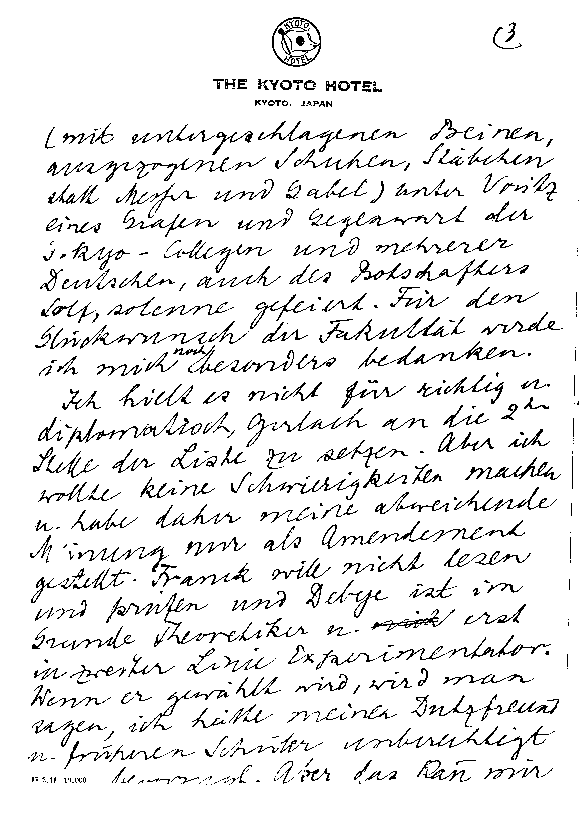 (3
KYOTO HOTEL
THE KYOTO HOTEL
KYOTO, JAPAN
(mit untergeschlagenen Beinen,
ausgezogenen Schuhen, Stäbchen
statt Messer und Gabel) unter Vorsitz
eines Grafen und Gegenwart der
Tokyo-Collegen und mehrerer
Deutschen, auch des Botschafters
Solf, solenne gefeiert. Für den
Glückwunsch der Fakultät werde
ich mich noch besonders bedanken.
Ich hielt es nicht für richtig u.
diplomatisch, Gerlach an die 2te
Stelle der Liste zu setzen. Aber ich
wollte keine Schwierigkeiten machen
u. habe daher meine abweichende
Meinung nur als Amendement
gestellt. Franck will nicht lesen
und prüfen und Debye ist im
Grunde Theoretiker u. erst
in zweiter Linie Experimentator.
Wenn er gewählt wird, wird man
sagen, ich hätte meinen Dutzfreund
u. früheren Schüler unberechtigt
bevorzugt. Aber das kann mir